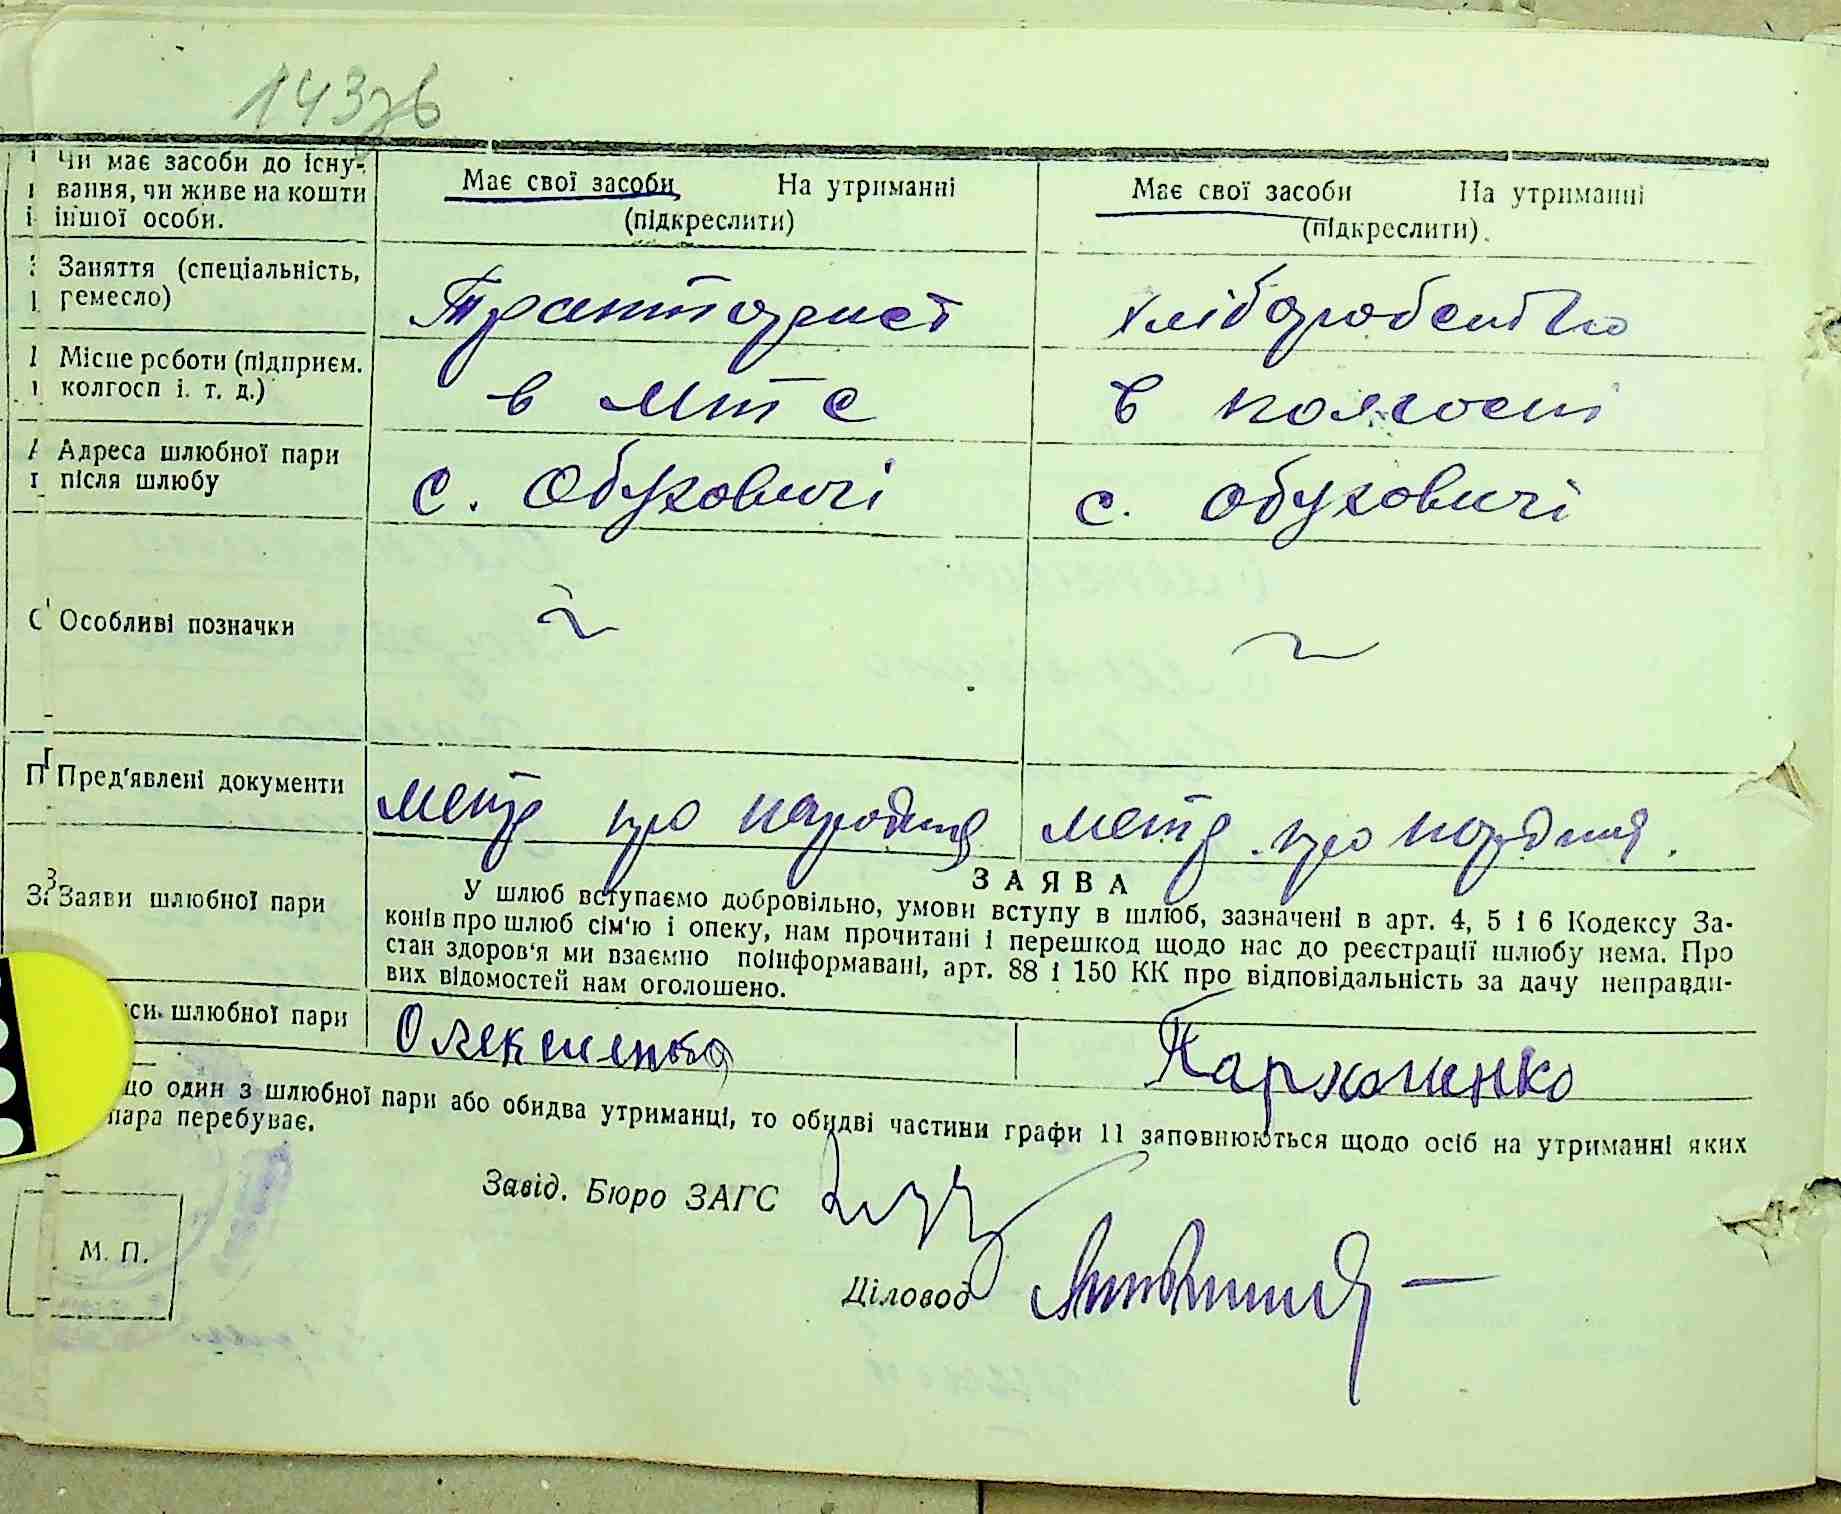 143зв
Чи має засоби до існу-
вання, чи живе на кошти
іншої особи.
Має свої засоби На утриманні
(підкреслити)
Має свої засоби На утриманні
(підкреслити).
Заняття (спеціальність,
ремесло)
Тракторист
хліборобство
Місце роботи (підприєм.
колгосп і. т. д.)
в мтс
в колгоспі
Адреса шлюбної пари
після шлюбу
с. Обуховичі
с. Обуховичі
Особливі позначки
Пред'явлені документи
метр про народжня
метр. про нордження.
Заяви шлюбної пари
ЗАЯВА
У шлюб вступаємо добровільно, умови вступу в шлюб, зазначені в арт. 4, 5 і 6 Кодексу За-
конів про шлюб сім'ю і опеку, нам прочитані і перешкод щодо нас до реєстрації шлюбу нема. Про
стан здоров'я ми взаємно поінформавані, арт. 88 і 150 КК про відповідальність за дачу неправди-
вих відомостей нам оголошено.
си шлюбної пари
Олексиенко
Пархоменко
що один з шлюбної пари або обидва утриманці, то обидві частини графи 11 заповнюються щодо осіб на утриманні яких
пара перебуває.
Завід. Бюро ЗАГС
М. П.
Діловод